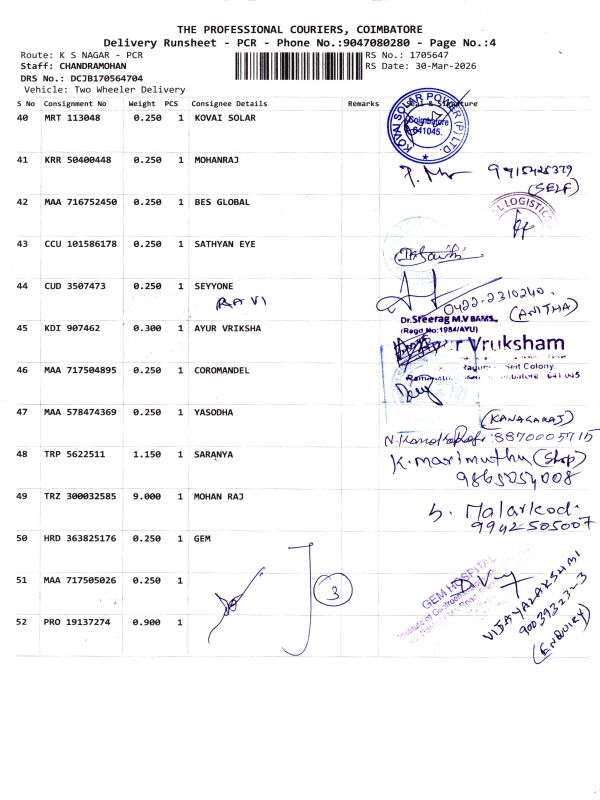 THE PROFESSIONAL COURIERS, COIMBATORE
Delivery Runsheet - PCR - Phone No.:9047080280 - Page No.:4
Route: K S NAGAR - PCR
RS No.: 1705647
Staff: CHANDRAMOHAN
RS Date: 30-Mar-2026
DRS No.: DCJB170564704
Vehicle: Two Wheeler Delivery
S No Consignment No Weight PCS Consignee Details Remarks Seal & Signature
40 MRT 113048 0.250 1 KOVAI SOLAR
KOVAI SOLAR POWER (P) LTD.
Coimbatore
641045.
41 KRR 50400448 0.250 1 MOHANRAJ
(SELF)
42 MAA 716752450 0.250 1 BES GLOBAL
LOGISTICS
43 CCU 101586178 0.250 1 SATHYAN EYE
44 CUD 3507473 0.250 1 SEYYONE
RAVI
0422-2310240.
(ANITHA)
45 KDI 907462 0.300 1 AYUR VRIKSHA
Dr.Sreerag M.V BAMS.,
(Regd No:1984/AYU)
r Vruksham
Seit Colony.
641 045
46 MAA 717504895 0.250 1 COROMANDEL
47 MAA 578474369 0.250 1 YASODHA
(KANAGARAJ)
8870005715
48 TRP 5622511 1.150 1 SARANYA
K. marimuthu (Shop)
9865054008
49 TRZ 300032585 9.000 1 MOHAN RAJ
S. Malarkodi
9942505007
50 HRD 363825176 0.250 1 GEM
GEM HOSPITAL
Institute of
51 MAA 717505026 0.250 1
3
VIJAYALAKSHMI
(ENQUIRY)
52 PRO 19137274 0.900 1